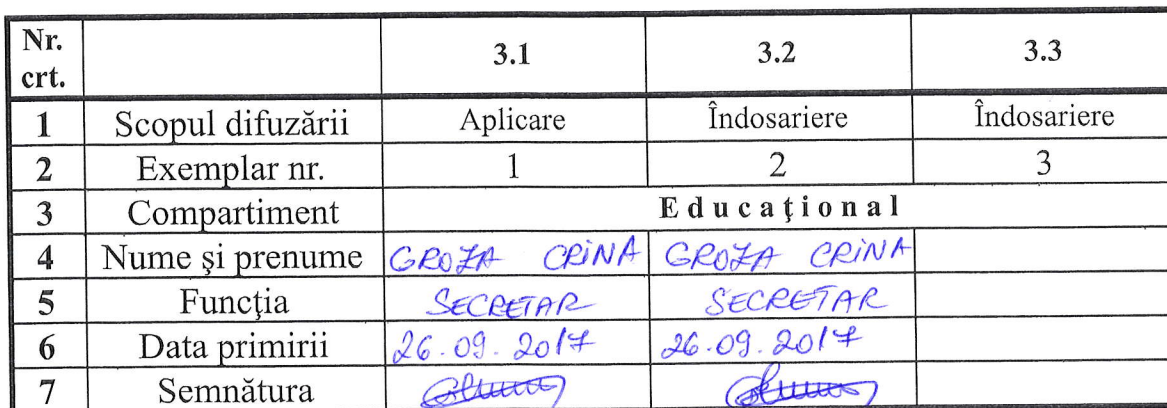 Nr. crt. 3.1 3.2 3.3
1 Scopul difuzării Aplicare Îndosariere Îndosariere
2 Exemplar nr. 1 2 3
3 Compartiment Educaţional
4 Nume şi prenume GROZA CRINA GROZA CRINA
5 Funcţia SECRETAR SECRETAR
6 Data primirii 26.09.2017 26.09.2017
7 Semnătura